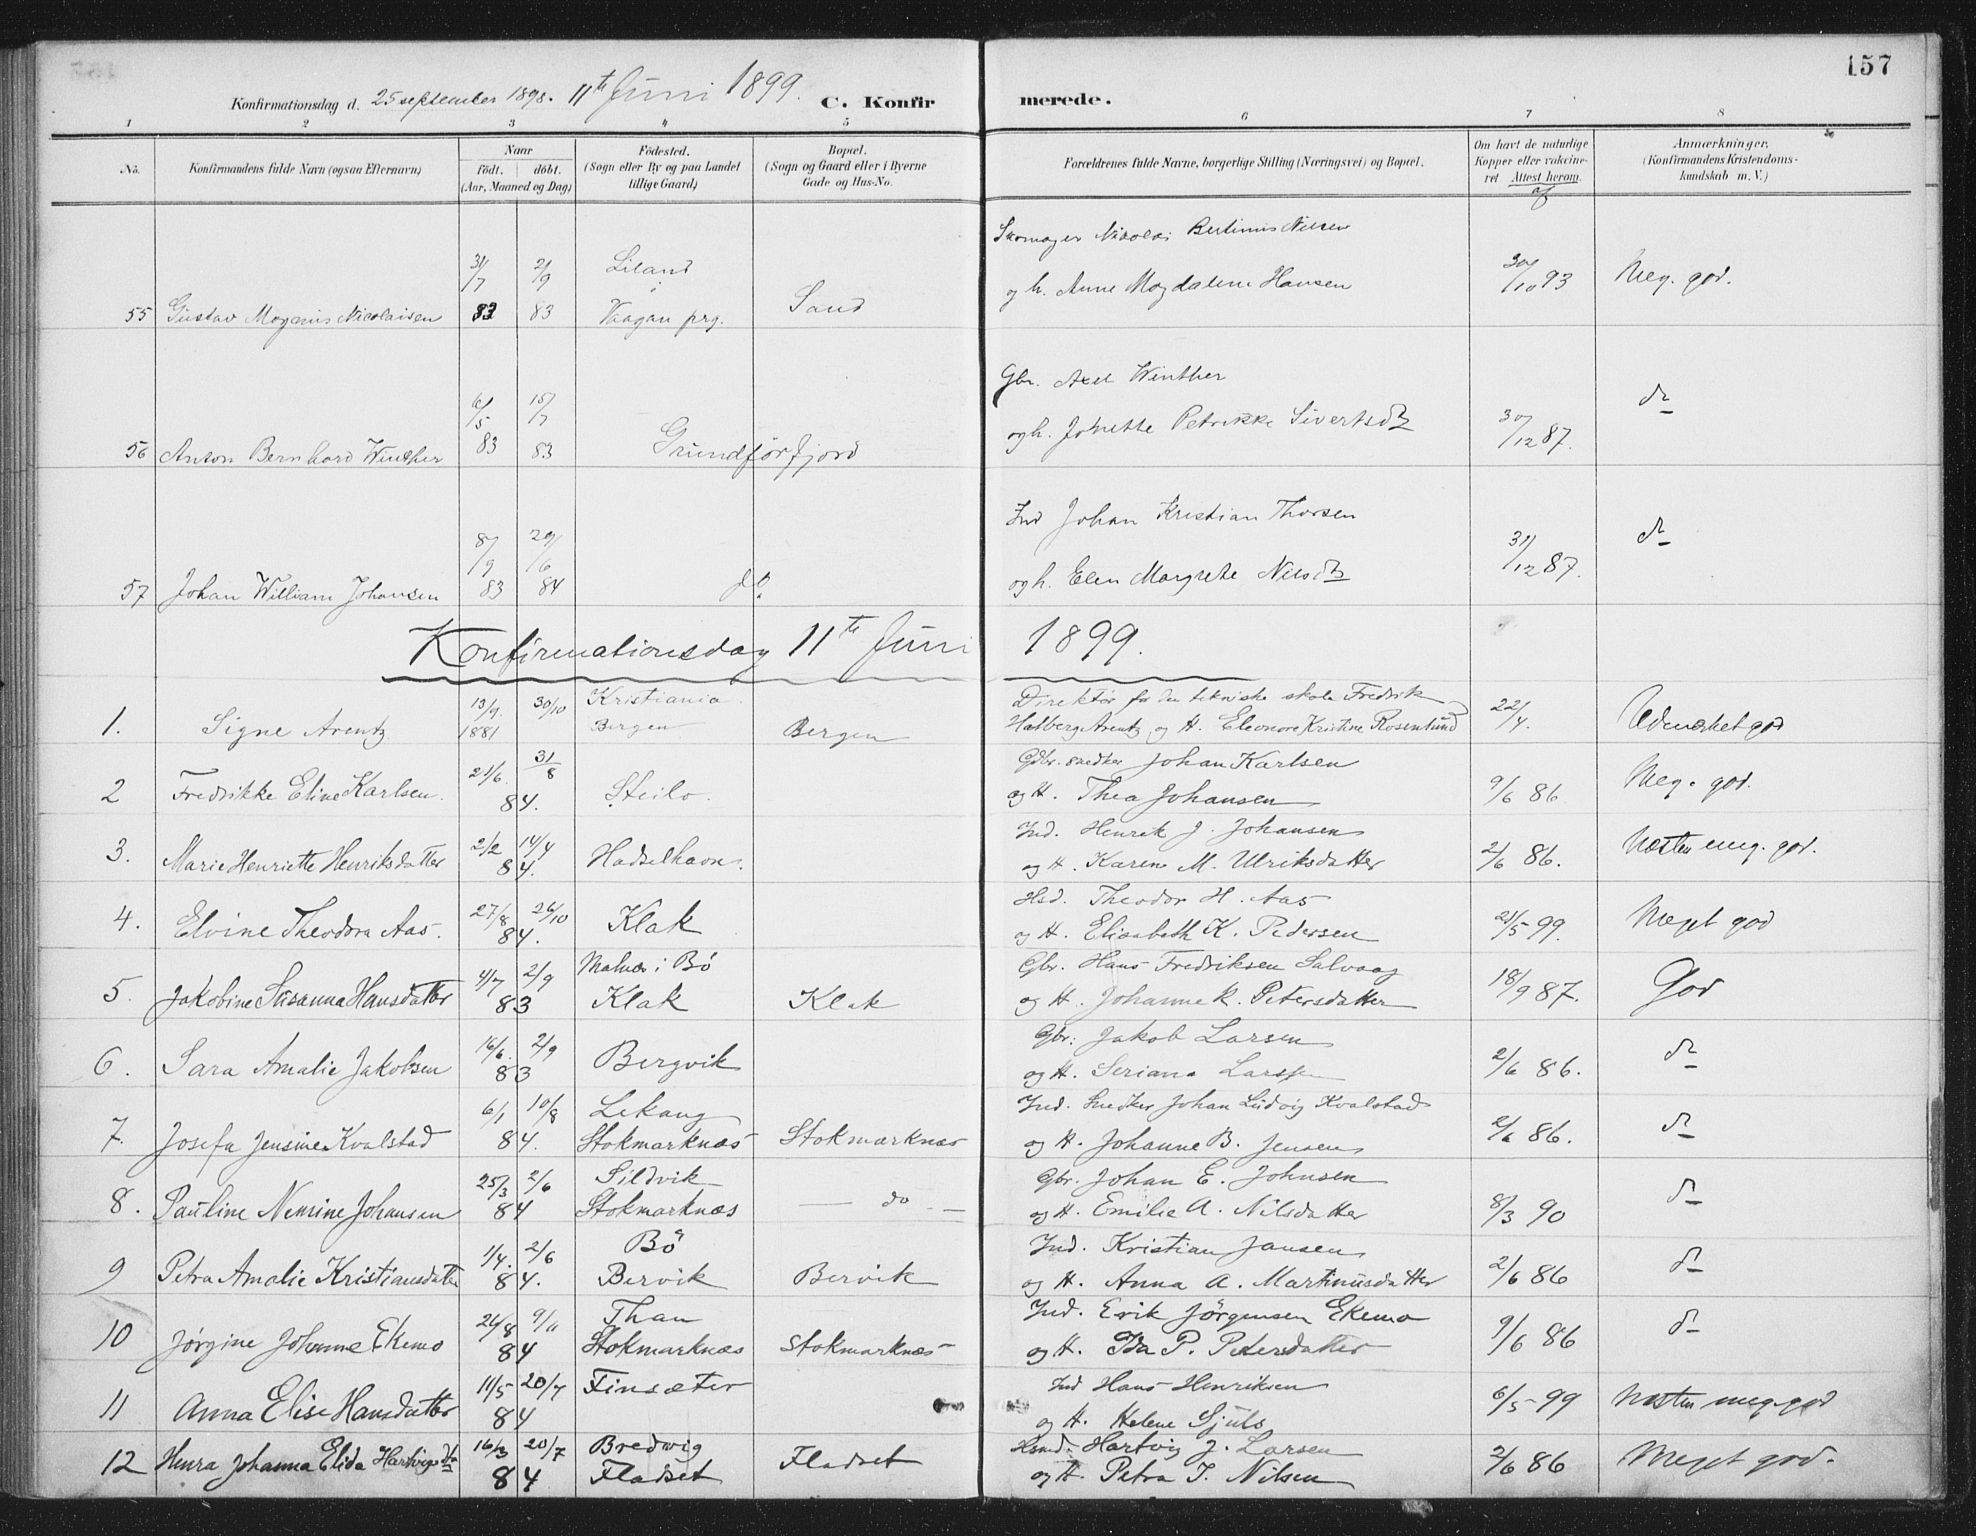 157
Konfirmationsdag d. 25 september 1898. 11te Juni 1899. C. Konfirmerede.
1 2 3 4 5 6 7 8
No. Konfirmandens fulde Navn (ogsaa Efternavn) Naar födt. döbt. (Aar, Maaned og Dag) Födested. (Sogn eller By og paa Landet tillige Gaard) Bopæl. (Sogn og Gaard eller i Byerne Gade og Hus-No. Forældrenes fulde Navne, borgerlige Stilling (Næringsvei) og Bopæl. Om havt de naturlige Kopper eller vaccineret Attest herom af Anmærkninger. (Konfirmandens Kristendomskundskab m. V.)
Skomager Nikolai Bertinus Nilsen
31/7 2/9 Liland
og h. Anne Magdalene Hansen 30/10 93 Meg. god.
55 Gustav Mogenus Nicolaisen 83 83 Vaagan prg. Sand
Gbr. Axel Winther
6/5 15/7
og h. Johette Petrikke Sivertsdtr 30/12 87. do
56 Anton Bernhard Winther 83 83 Grundförfjord
Ind Johan Kristian Thorsen
8/9 29/6 31/12 87. do
og h. Elen Margrete Nilsdtr
57 Johan William Johansen 83 84 do
Konfirmationsdag 11te Juni 1899.
13/9 30/10 Kristiania Direktör for den tekniske skole Fredrik
1. Signe Arentz 1881 Bergen Bergen Hatberg Arentz og H. Eleonore Kristine Rosenlund 22/4. Udmerket god
21/6 31/8 Gbr. snedker Johan Karlsen
2 Fredrikke Eline Karlsen. 84. Steilo. og H. Thea Johansen 9/6 86 Meg. god.
2/2 14/4 Ind. Henrik J. Johansen
3. Marie Henriette Henriksdatter 84. Hadselhavn. og H. Karen M. Ulriksdatter 2/6 86. Næsten meg. god.
27/8 26/10 Hsd. Theodor H. Aas
4. Elvine Theodora Aas. 84. Klak og H. Elisabeth K. Pedersen 21/5 99. Meget god
4/7 2/9 Malnes i Bö Gbr. Hans Fredriksen Salvaag
5. Jakobine Susanna Hansdatter 83 Klak Klak og H. Johanne K. Petersdatter 18/9 87. God
16/6. 2/9 Gbr. Jakob Larsen
6. Sara Amalie Jakobsen 83 Bergvik og H. Seriana Larssen 2/6 86. do
6/1 10/8 Lekang Ind. Snedker Johan Ludvig Kvalstad
7. Josefa Jensine Kvalstad 84. Stokmarknæs Stokmarknæs og H. Johanne B. Jensen 2/6 86. do
25/3 2/6 Sildvik Gbr. Johan E. Johnsen
8. Pauline Nensine Johansen 84 Stokmarknæs — do — og H. Emilie A. Nilsdatter 8/3 90 do
1/4. 2/6 Bö Ind. Kristian Jansen
9 Petra Amalie Kristiansdatter 84. Bervik Bervik og H. Anna A. Martinusdatter 2/6 86 do
24/8 9/11 Than Ind. Erik Jörgensen Ekemo
10 Jørgine Johanne Ekemo 84 Stokmarknæs Stokmarknæs og H. Ida P. Petersdatter 9/6 86 do
11/5 20/7 Finsæter Ind Hans Henriksen
11 Anna Elise Hansdatter 84 og H. Helene Sjuls 6/5 99 Næsten meg. god
16/3 20/7 Bredvig Hsmd. Hartvig J. Larsen
12 Henra Johanna Elida Hartvigsdtr 84 Fladset Fladset og H. Petra J. Nilsen 2/6 86 Meget god.